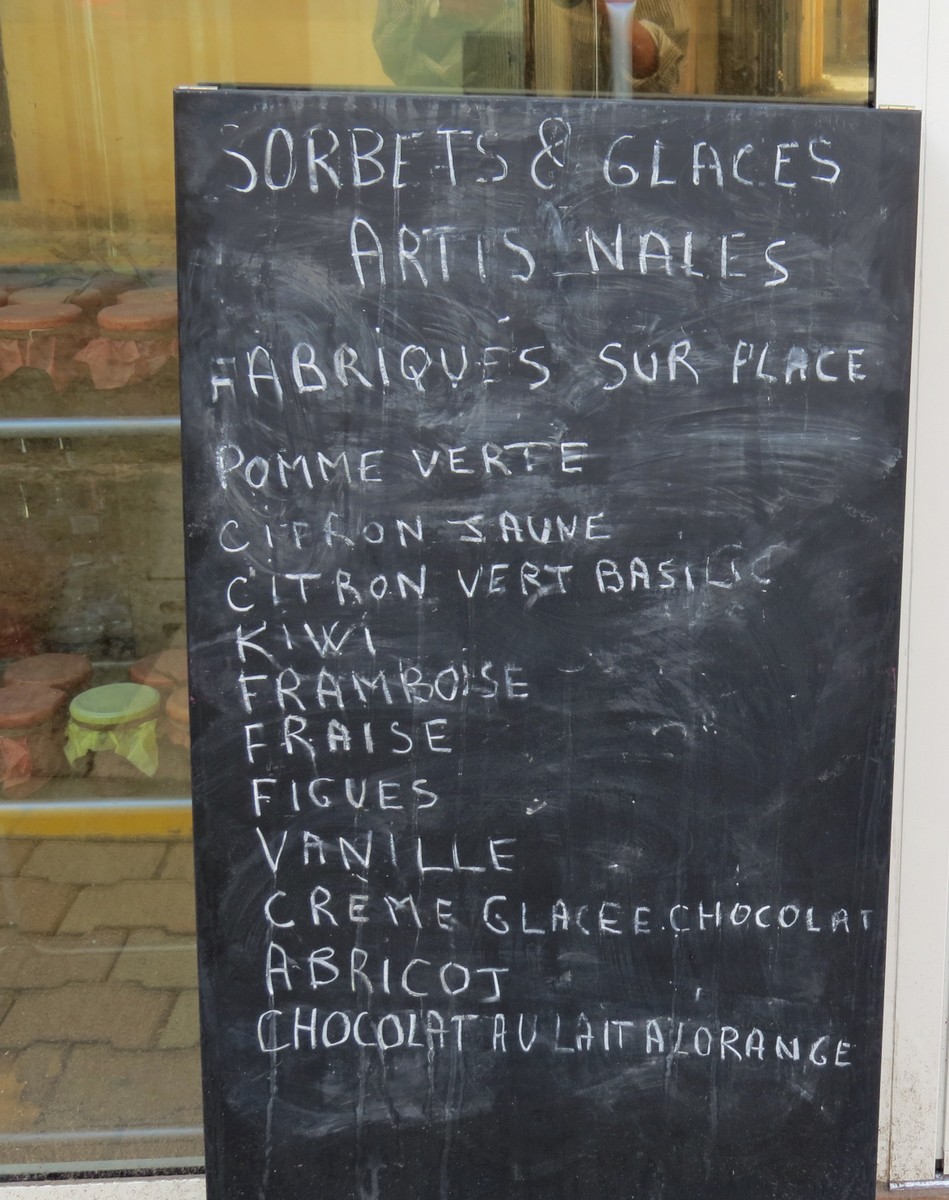 SORBETS & GLACES
ARTIS NALES
FABRIQUES SUR PLACE
POMME VERTE
CITRON JAUNE
CITRON VERT BASILIC
KIWI
FRAMBOISE
FRAISE
FIGUES
VANILLE
CREME GLACEE.CHOCOLAT
ABRICOT
CHOCOLAT AU LAIT A L'ORANGE